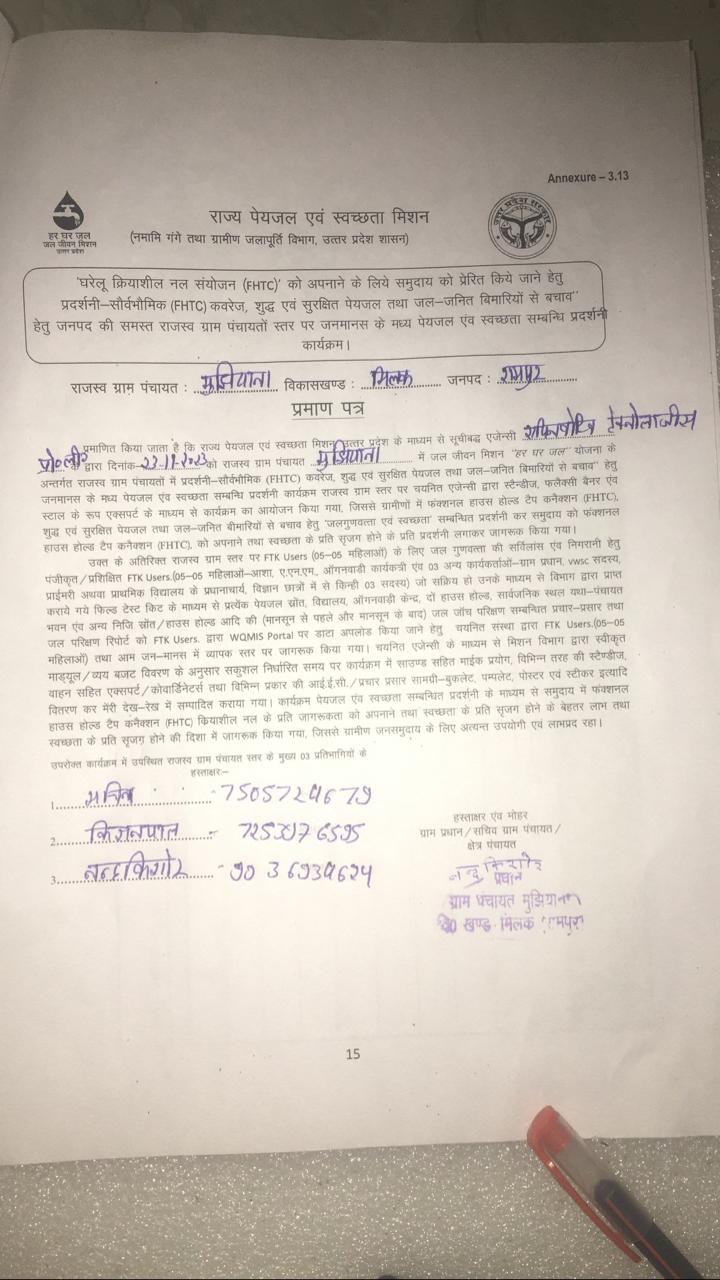 Annexure – 3.13
हर घर जल
जल जीवन मिशन
उत्तर प्रदेश
राज्य पेयजल एवं स्वच्छता मिशन
(नमामि गंगे तथा ग्रामीण जलापूर्ति विभाग, उत्तर प्रदेश शासन)
उत्तर प्रदेश सरकार
'घरेलू क्रियाशील नल संयोजन (FHTC)' को अपनाने के लिये समुदाय को प्रेरित किये जाने हेतु
प्रदर्शनी–सौर्वभौमिक (FHTC) कवरेज, शुद्ध एवं सुरक्षित पेयजल तथा जल–जनित बिमारियों से बचाव"
हेतु जनपद की समस्त राजस्व ग्राम पंचायतों स्तर पर जनमानस के मध्य पेयजल एंव स्वच्छता सम्बन्धि प्रदर्शनी
कार्यक्रम।
राजस्व ग्राम पंचायत : मुझियाना विकासखण्ड : मिलक जनपद : रामपुर
प्रमाण पत्र
प्रमाणित किया जाता है कि राज्य पेयजल एवं स्वच्छता मिशन, उत्तर प्रदेश के माध्यम से सूचीबद्ध एजेन्सी टेक्नोलाजीस
प्रा०ली० के द्वारा दिनांक-23-11-2023 को राजस्व ग्राम पंचायत मुझियाना में जल जीवन मिशन "हर घर जल" योजना के
अन्तर्गत राजस्व ग्राम पंचायतों में प्रदर्शनी–सौर्वभौमिक (FHTC) कवरेज, शुद्ध एवं सुरक्षित पेयजल तथा जल–जनित बिमारियों से बचाव" हेतु
जनमानस के मध्य पेयजल एंव स्वच्छता सम्बन्धि प्रदर्शनी कार्यक्रम राजस्व ग्राम स्तर पर चयनित एजेन्सी द्वारा स्टैन्डीज, फलैक्सी बैनर एंव
स्टाल के रूप एक्सपर्ट के माध्यम से कार्यक्रम का आयोजन किया गया, जिससे ग्रामीणों में फंक्शनल हाउस होल्ड टैप कनैक्शन (FHTC),
शुद्ध एवं सुरक्षित पेयजल तथा जल–जनित बीमारियों से बचाव हेतु 'जलगुणवत्ता एवं स्वच्छता' सम्बन्धित प्रदर्शनी कर समुदाय को फंक्शनल
हाउस होल्ड टैप कनैक्शन (FHTC), को अपनाने तथा स्वच्छता के प्रति सृजग होने के प्रति प्रदर्शनी लगाकर जागरूक किया गया।
उक्त के अतिरिक्त राजस्व ग्राम स्तर पर FTK Users (05–05 महिलाओं) के लिए जल गुणवत्ता की सर्विलांस एंव निगरानी हेतु
पंजीकृत/प्रशिक्षित FTK Users.(05–05 महिलाओं-आशा, ए.एन.एम., ऑंगनवाड़ी कार्यकत्री एंव 03 अन्य कार्यकर्ताओं–ग्राम प्रधान, vwsc सदस्य,
प्राईमरी अथवा प्राथमिक विद्यालय के प्रधानाचार्य, विज्ञान छात्रों में से किन्ही 03 सदस्य) जो सक्रिय हो उनके माध्यम से विभाग द्वारा प्राप्त
कराये गये फिल्ड टेस्ट किट के माध्यम से प्रत्येक पेयजल स्रोंत, विद्यालय, ऑंगनवाड़ी केन्द्र, दों हाउस होल्ड, सार्वजनिक स्थल यथा–पंचायत
भवन एंव अन्य निजि स्रोंत/हाउस होल्ड आदि की (मानसून से पहले और मानसून के बाद) जल जॉंच परिक्षण सम्बन्धित प्रचार–प्रसार तथा
जल परिक्षण रिपोर्ट को FTK Users. द्वारा WQMIS Portal पर डाटा अपलोड किया जाने हेतु चयनित संस्था द्वारा FTK Users.(05–05
महिलाओं) तथा आम जन–मानस में व्यापक स्तर पर जागरूक किया गया। चयनित एजेन्सी के माध्यम से मिशन विभाग द्वारा स्वीकृत
माड्यूल/व्यय बजट विवरण के अनुसार सकुशल निर्धारित समय पर कार्यक्रम में साउण्ड सहित माईक प्रयोग, विभिन्न तरह की स्टैण्डीज,
वाहन सहित एक्सपर्ट/कोवार्डिनेटर्स तथा विभिन्न प्रकार की आई.ई.सी./प्रचार प्रसार सामग्री–बुकलेट, पम्पलेट, पोस्टर एवं स्टीकर इत्यादि
वितरण कर मेरी देख–रेख में सम्पादित कराया गया। कार्यक्रम पेयजल एंव स्वच्छता सम्बन्धित प्रदर्शनी के माध्यम से समुदाय में फंक्शनल
हाउस होल्ड टैप कनैक्शन (FHTC) कियाशील नल के प्रति जागरूकता को अपनाने तथा स्वच्छता के प्रति सृजग होने के बेहतर लाभ तथा
स्वच्छता के प्रति सृजग होने की दिशा में जागरूक किया गया, जिससे ग्रामीण जनसमुदाय के लिए अत्यन्त उपयोगी एवं लाभप्रद रहा।
उपरोक्त कार्यक्रम में उपस्थित राजस्व ग्राम पंचायत स्तर के मुख्य 03 प्रतिभागियों के
हस्ताक्षर:–
1. सचिन - 7505724679
2. किशनपाल :-
3. नन्दकिशोर - 9036934624
हस्ताक्षर एंव मोहर
ग्राम प्रधान/सचिव ग्राम पंचायत/
क्षेत्र पंचायत
नन्द किशोर
प्रधान
ग्राम पंचायत मुझियाना
वि० खण्ड-मिलक (रामपुर)
15